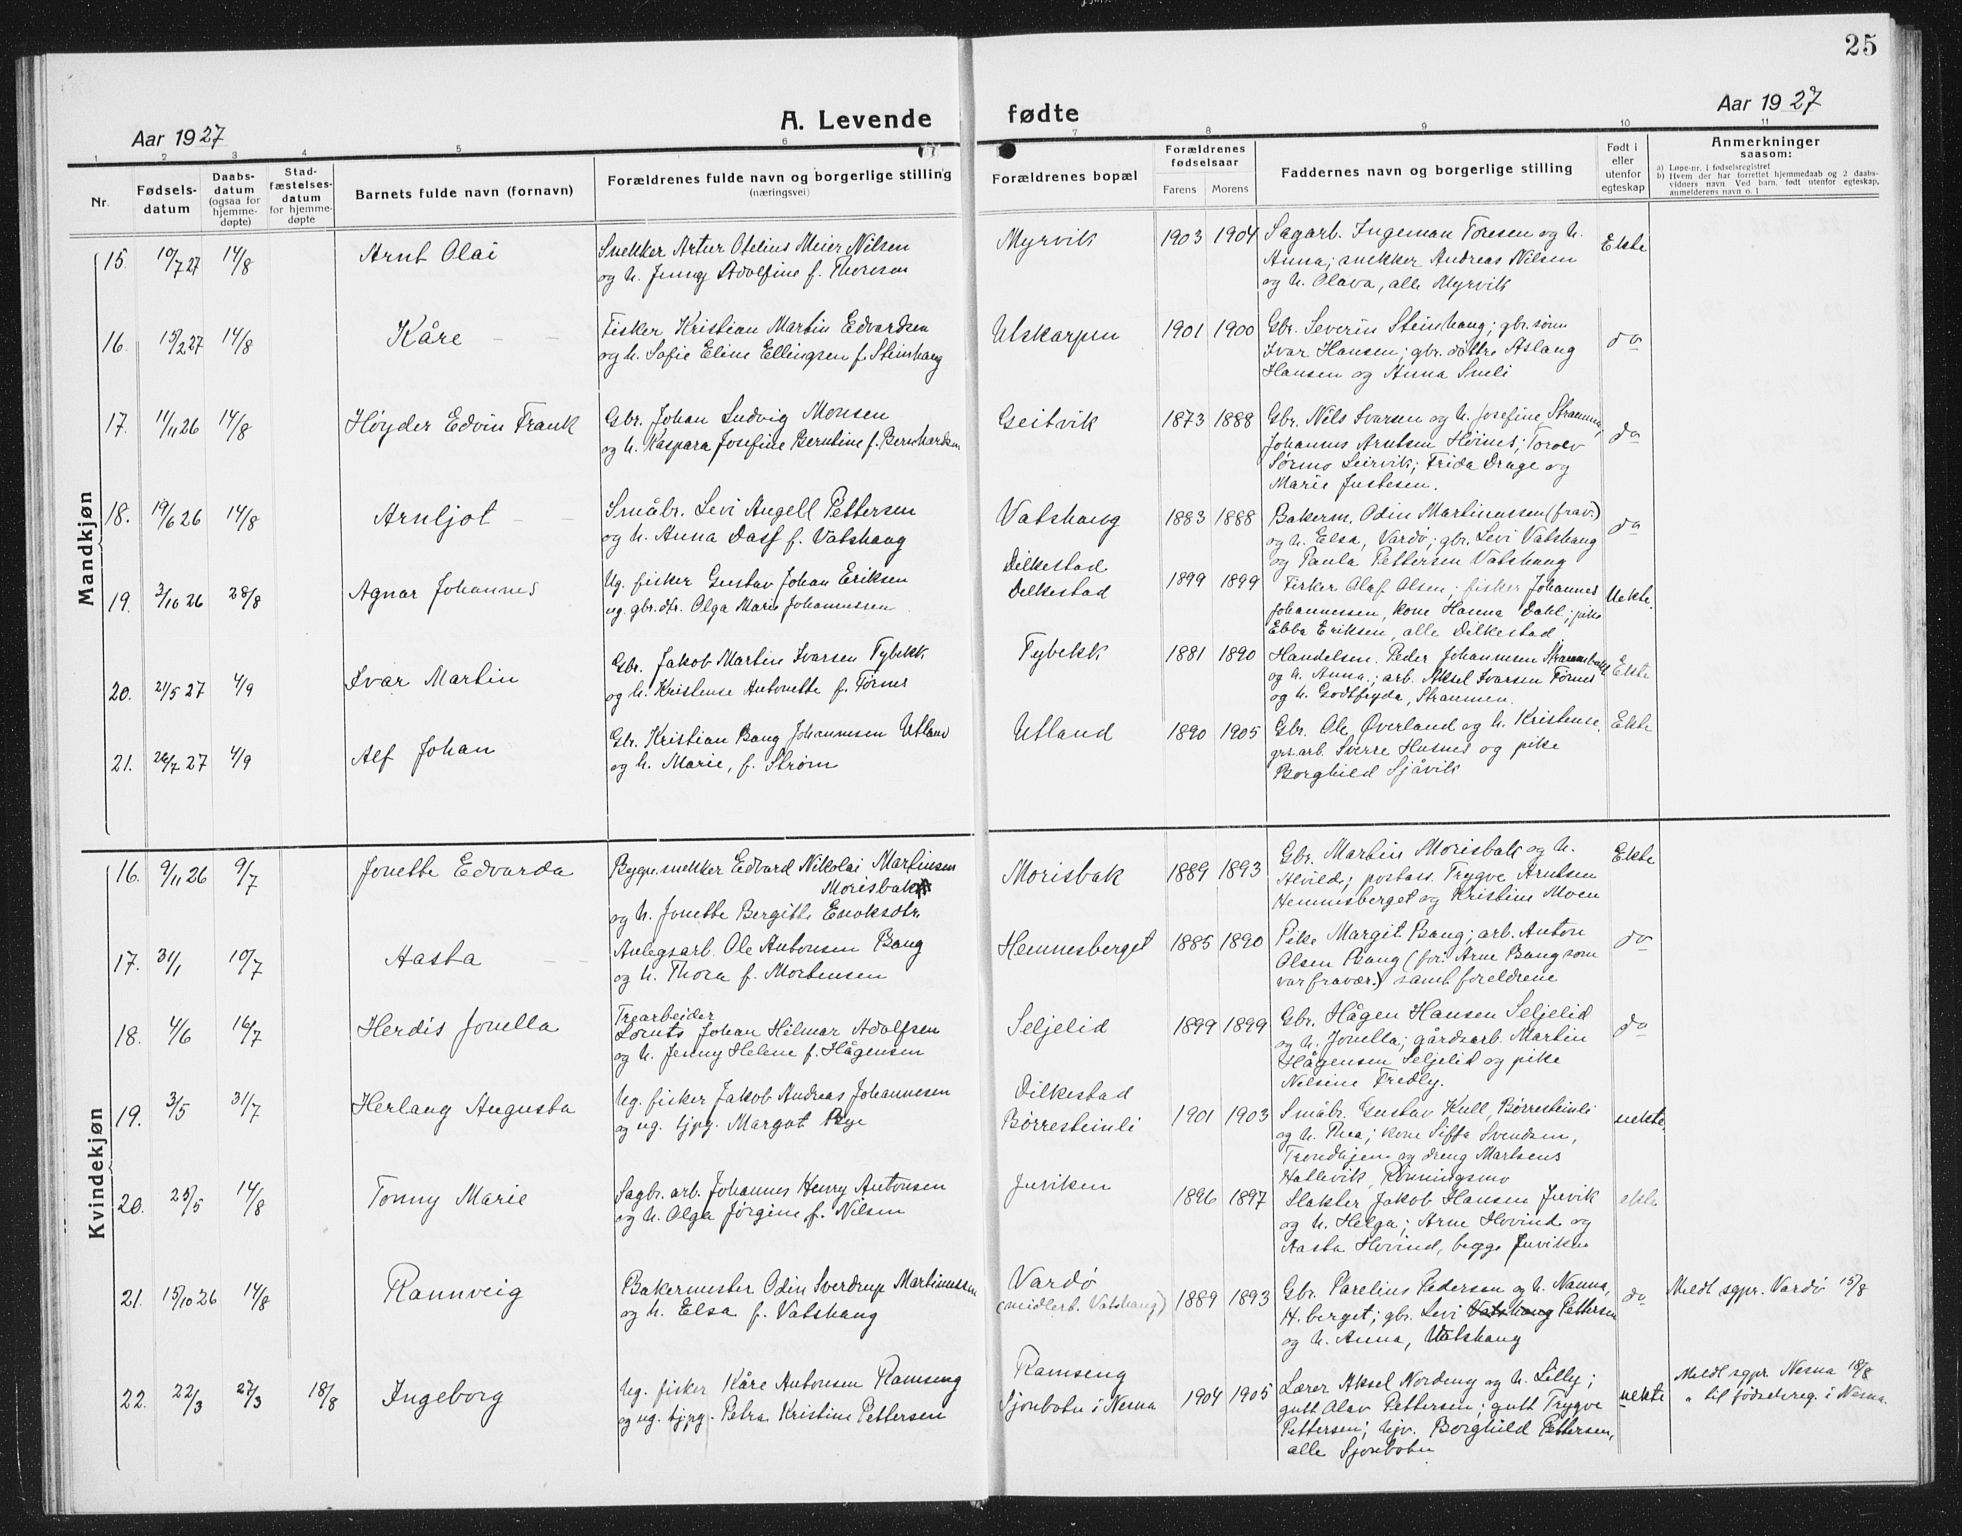 25
A. Levende fødte
Aar 1927
Aar 1927
1 2 3 4 5 6 7 8 9 10 11
Nr.
Fødsels-
datum
Daabs-
datum
(ogsaa for
hjemme-
døpte)
Stad-
fæstelses-
datum
for hjemme-
døpte
Barnets fulde navn (fornavn)
Forældrenes fulde navn og borgerlige stilling
(næringsvei)
Forældrenes bopæl
Forældrenes
fødselsaar
Farens Morens
Faddernes navn og borgerlige stilling
Født i
eller
utenfor
egteskap
Anmerkninger
saasom:
a) Løpe-nr. i fødselsregistret
b) Hvem der har forrettet hjemmedaab og 2 daabs-
vidners navn. Ved barn, født utenfor egteskap,
anmelderens navn o. l.
Mandkjøn
15. 10/7 27 14/8 Arnt Olai
Snekker Artur Otelius Meier Nilsen
og h. Jenny Adolfine f. Thoresen
Myrvik 1903 1904
Sagarb. Ingeman Toresen og h.
Anna; snekker Andreas Nilsen
og h. Olava, alle Myrvik
Ekte
16. 15/2 27 14/8 Kåre
Fisker Kristian Martin Edvardsen
og h. Sofie Eline Ellingsen f. Steinhaug
Utskarpen 1901 1900
Gbr. Severin Steinhaug; gbr. sønn
Ivar Hansen; gbr. døttre Aslaug
Hansen og Anna Sneli
do
17. 11/11 26 14/8 Høyder Edvin Frank
Gbr. Johan Ludvig Monsen
og h. Kaspara Josefine Berntine f. Bernhardsen
Geitvik 1873 1888
Gbr. Nils Ivarsen og h. Josefine Strammen;
Johannes Arntsen Høines; Torolv
Sørmo Leirvik; Frida Drage og
Marie Justesen.
do
18. 19/6 26 14/8 Arnljot
Småbr. Levi Angell Pettersen
og h. Anna Dass f. Vatshaug
Vatshaug 1883 1888
Bakerm. Odin Martinussen (frav.)
og h. Elsa, Vardø; gbr. Levi Vatshaug
og Paula Pettersen Vatshaug
do
19. 3/10 26 28/8 Agnar Johannes
Ug. fisker Gustav Johan Eriksen
ug. gbr.dtr. Olga Marie Johannessen
Dilkestad
Dilkestad 1899 1899
Fisker Olaf Olsen; fisker Johannes
Johannessen, kone Hanna Dahl; pike
Ebba Eriksen, alle Dilkestad
Uekte.
20. 21/5 27 4/9 Ivar Martin
Gbr. Jakob Martin Ivarsen Tybekk
og h. Kristense Antonette f. Førnes
Tybekk 1881 1890
Handelsm. Peder Johannesen
og h. Anna; arb. Aksel Ivarsen Førnes
og h. Godtfryda, Strammen.
Ekte
21. 26/7 27 4/9 Alf Johan
Gbr. Kristian Bang Johannesen Utland
og h. Marie, f. Strøm
Utland 1890 1905
Gbr. Ole Øverland og h. Kristense,
arb. Sverre Husnes og pike
Borghild Sjåvik
Ekte
Kvindekjøn
16. 9/11 26 9/7 Jonette Edvarda
Bygn.snekker Edvard Nikolai Martinsen
Morisbak
og h. Jonette Bergitte Enoksdtr.
Morisbak 1889 1893
Gbr. Martin Morisbak og h.
Alvilde; postass. Trygve Arntsen
Hemnesberget og Kristine Moen
Ekte
17. 31/1 10/7 Aasta
Anlegsarb. Ole Antonsen Bang
og h. Thora f. Mortensen
Hemnesberget 1885 1890
Pike Margit Bang; arb. Anton
Olsen Bang (for: Arne Bang som
var fravær.) samt foreldrene
do
18. 4/6 16/7 Herdis Jonella
Trearbeider
Lornts Johan Hilmar Adolfsen
og h. Jenny Helene f. Hågensen
Seljelid 1899 1899
Gbr. Hågen Hansen Seljelid
og h. Jonella; gårdsarb. Martin
Hågensen Seljelid og pike
Nilsine Fredly.
do
19. 3/5 31/7 Herlaug Augusta
Ug. fisker Jakob Andreas Johannesen
og ug. tjpg. Margot Bye
Dilkestad
Børresteinli 1901 1903
Småbr. Gustav Kull, Børresteinli
og h. Thea; kone Siffa Svendsen,
Trondhjem og dreng Martsens
Hattevik, Rønningsmo
uekte.
20. 25/5 14/8 Tonny Marie
Sagbr. arb. Johannes Henry Antonsen
og h. Olga Jørgine f. Nilsen
Juviken 1896 1897
Slakter Jakob Hansen Juvik
og h. Helga; Arne Hovind og
Aasta Hovind, begge Juviken
ekte
21. 15/10 26 14/8 Rannveig
Bakermester Odin Sverdrup Martinussen
og h. Elsa f. Vatshaug
Vardø
(midlert. Vatshaug) 1889 1893
Gbr. Parelius Pedersen og h. Nanna,
H.berget; gbr. Levi Vatshaug Pettersen
og h. Anna, Vatshaug
do
Meldt sgpr. Vardø 15/8
22. 22/3 27/3 18/8 Ingeborg
Ug. fisker Kåre Antonsen Ramseng
og ug. tjpg. Petra Kristine Pettersen
Ramseng
Sjonbotn i Nesna 1904 1905
Lærer Aksel Nordeng og h. Lilly;
gutt Olav Pettersen; gutt Trygve
Pettersen; hjv. Borghild Pettersen,
alle Sjonbotn
uekte
Meldt sgpr. Nesna 18/8
" til fødselsreg. i Nesna.